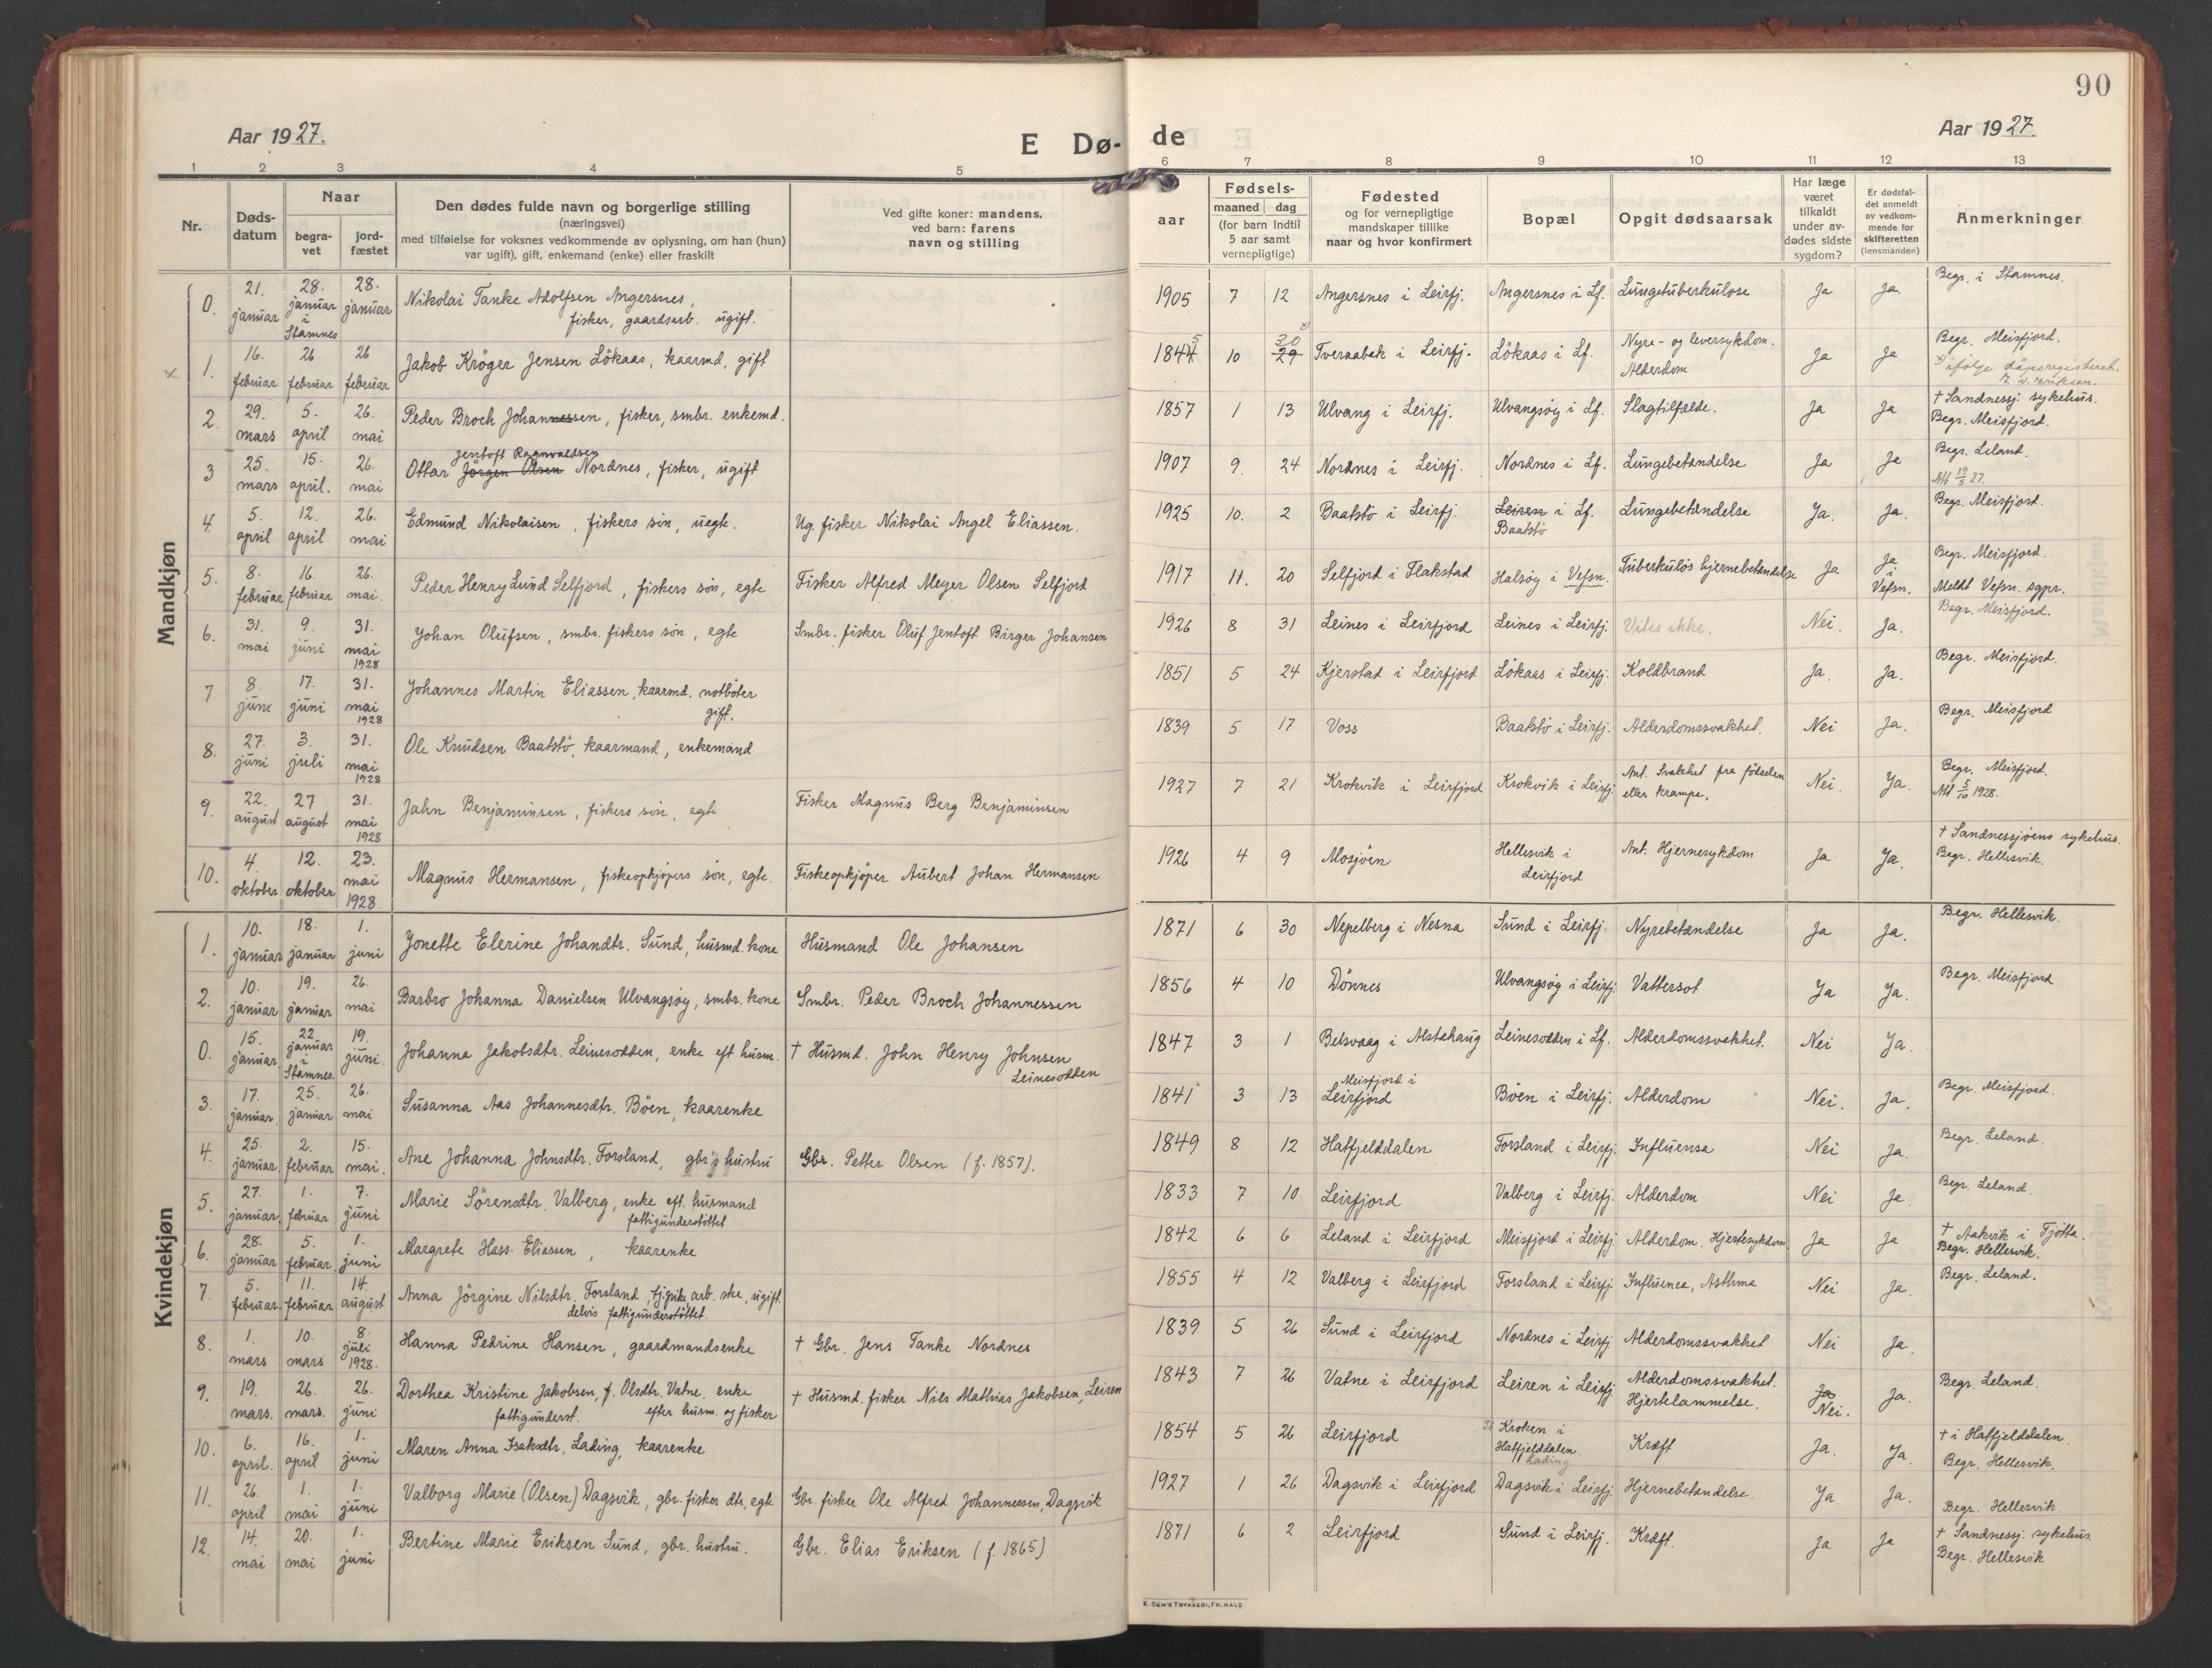 90
Aar 1927.
E Dø-
de
Aar 1927.
1 2 3 4 5
6 7 8 9 10 11 12 13
Nr.
Døds-
datum
Naar
begra-
vet
jord-
fæstet
Den dødes fulde navn og borgerlige stilling
(næringsvei)
med tilføielse for voksnes vedkommende av oplysning, om han (hun)
var ugift), gift, enkemand (enke) eller fraskilt
Ved gifte koner: mandens,
ved barn: farens
navn og stilling
aar
Fødsels-
maaned dag
(for barn indtil
5 aar samt
vernepligtige)
Fødested
og for vernepligtige
mandskaper tillike
naar og hvor konfirmert
Bopæl
Opgit dødsaarsak
Har læge
været
tilkaldt
under av-
dødes sidste
sygdom?
Er dødsfal-
det anmeldt
av vedkom-
mende for
skifteretten
(lensmanden)
Anmerkninger
Mandkjøn
0. 21. januar 28. januar i Stamnes 28. januar Nikolai Tanke Adolfsen Angersnes,
fisker, gaardsarb. ugift.
1905 7 12 Angersnes i Leirfj. Angersnes i Lf. Lungetuberkulose Ja Ja. Begr. i Stamnes.
x 1. 16. februar 26 februar 26 februar Jakob Kröger Jensen Lökaas, kaarmd, gift
1844 5 10 29 30 x) Tveraabæk i Leirfj. Lökaas i Lf. Nyre- og leversykdom.
Alderdom Ja Ja Begr. Meisfjord.
x) ifølge dåpsregisteret.
2. 29. mars 5. april 26. mai Peder Broch Johannessen, fisker, smbr. enkemd.
1857 1 13 Ulvang i Leirfj. Ulvangsøy i Lf. Slagtilfælde. Ja Ja † Sandnessj. sykehus.
Begr. Meisfjord.
3 25. mars 15. april. 26. mai Jentoft Ragnvaldsen
Ottar Jörgen Olsen Nordnes, fisker, ugift
1907 9. 24 Nordnes i Leirfj. Nordnes i Lf. Lungebetændelse Ja Ja Begr. Leland.
Att 19/5 27.
4. 5. april 12. april 26. mai Edmund Nikolaisen, fiskers sön, uegte. Ug. fisker Nikolai Angel Eliassen.
1925 10. 2 Baatstö i Leirfj. Leiren i Lf.
Baatstö Lungebetændelse Ja. Ja. Begr. Meisfjord.
5. 8. februar 16. februar 26. mai. Peder Henry Lund Selfjord, fiskers sön, egte Fisker Alfred Meyer Olsen Selfjord
1917 11. 20 Selfjord i Flakstad Halsöy i Vefsn. Tuberkulös hjernebetændelse Ja Ja i Vefsn. Begr. Meisfjord.
Meldt Vefsn. sgpr.
6. 31. mai 9. juni 31. mai 1928 Johan Olufsen, smbr. fiskers sön, egte Smbr. fisker Oluf Jentoft Birger Johansen
1926 8 31 Leines i Leirfjord Leines i Leirfj. Vites ikke. Nei. Ja. Begr. Meisfjord.
7 8. juni 17. juni 31. mai 1928 Johannes Martin Eliassen, kaarmd. notböter
gift.
1851 5 24 Kjerstad i Leirfjord Lökaas i Leirfj. Koldbrand Ja. Ja. Begr. Meisfjord.
8. 27. juni 3. juli 31. mai 1928 Ole Knudsen Baatstö, kaarmand, enkemand
1839 5 17 Voss Baatstö i Leirfj. Alderdomssvakhet. Nei Ja. Begr. Meisfjord
9. 22. august 27 august 31. mai 1928 Jahn Benjaminsen, fiskers sön, egte Fisker Magnus Berg Benjaminsen
1927 7 21 Krokvik i Leirfjord Krokvik i Leirfj. Ant. Svakhet fra födselen
eller krampe. Nei. Ja. Begr. Meisfjord.
Att 5/10 1928.
10. 4. oktober 12. oktober 23. mai 1928 Magnus Hermansen, fiskeopkjöpers sön, egte. Fiskeopkjöper Aubert Johan Hermansen
1926 4 9 Mosjöen Hellesvik i
Leirfjord Ant. Hjernesykdom Ja Ja. † Sandnessjöens sykehus.
Begr. Hellesvik.
Kvindekjøn
1. 10. januar 18. januar 1. juni Jonette Elerine Johandtr. Sund, husmd. kone Husmand Ole Johansen
1871 6 30 Nepelberg i Nesna Sund i Leirfj. Nyrebetændelse Ja Ja. Begr. Hellesvik.
2. 10. januar 19. januar 26. mai Barbro Johanna Danielsen Ulvangsöy, smbr. kone Smbr. Peder Broch Johannessen
1856 4 10 Dönnes Ulvangsöy i Leirfj. Vattersot Ja Ja. Begr. Meisfjord
0. 15. januar 22. januar i Stamnes. 19. juni. Johanna Jakobsdtr. Leinesodden, enke eft husm. † Husmd. John Henry Johnsen
Leinesodden
1847 3 1 Belsvaag i Alstahaug Leinesodden i Lf. Alderdomssvakhet. Nei Ja.
3. 17. januar. 25. januar 26. mai Susanna Aas Johannesdtr. Böen, kaarenke
1841 3 13 Meisfjord i
Leirfjord Böen i Leirfj. Alderdom Nei. Ja. Begr. Meisfjord.
4. 25. januar. 2. februar 15. mai. Ane Johanna Johnsdtr. Forsland, gbr's hustru Gbr. Petter Olsen (f. 1857).
1849 8 12 Hatfjelddalen Forsland i Leirfj. Influensa Nei Ja. Begr. Leland.
5. 27. januar. 1. februar 7. juni Marie Sörensdtr. Valberg, enke eft. husmand
fattigunderstöttet
1833 7 10 Leirfjord Valberg i Leirfj. Alderdom Nei Ja Begr. Leland.
6. 28. januar 5. februar. 1. juni Margrete Hass Eliassen, kaarenke
1842 6 6 Leland i Leirfjord Meisfjord i Leirfj. Alderdom. Hjertesykdom. Ja Ja † Aakvik i Tjötta.
Begr. Hellesvik.
7. 5. februar. 11. februar 14. august Anna Jörgine Nilsdtr. Forsland, arb. ske, ugift.
delvis fattigunderstöttet.
1855 4 12 Valberg i Leirfjord Forsland i Leirfj. Influenea, Asthma Nei Ja. Begr. Leland.
8. 1. mars 10. mars 8. juli 1928. Hanna Pedrine Hansen, gaardmandsenke † Gbr. Jens Tanke Nordnes
1839 5 26 Sund i Leirfjord Nordnes i Leirfj Alderdomssvakhet Nei Ja.
9. 19. mars. 26. mars. 26. juni Dorthea Kristine Jakobsen, f. Olsdtr. Vatne, enke
fattigunderst. efter husm. og fisker † Husmd. fisker Nils Mathias Jakobsen, Leiren
1843 7 26 Vatne i Leirfjord Leiren i Leirfj. Alderdomssvakhet.
Hjertelammelse. Ja
Nei. Ja. Begr. Leland.
10. 6. april. 16. april 1. juni Maren Anna Isaksdtr. Lading, kaarenke
1854 5 26 Leirfjord Kroken i
Hatfjelddalen.
Lading Kræft Ja. Ja. † i Hatfjelddalen.
Begr. Hellesvik.
11. 26. april 1. mai 1. juni Valborg Marie (Olsen) Dagsvik, gbr. fisker dtr, egte Gbr. fisker Ole Alfred Johannessen, Dagsvik
1927 1 26 Dagsvik i Leirfjord Dagsvik i Leirfj. Hjernebetændelse. Ja. Ja. Begr. Hellesvik.
12. 14. mai 20. mai 1. juni Bertine Marie Eriksen Sund, gbr. hustru. Gbr. Elias Eriksen (f. 1865)
1871 6 2 Leirfjord Sund i Leirfj. Kræft. Ja Ja † Sandnessj. sykehus.
Begr. Hellesvik
E. SEM'S TRYKKERI, FR.HALD